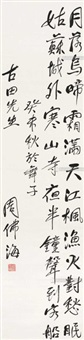 月落烏啼霜滿天江楓漁火對愁眠
姑蘇城外寒山寺夜半鐘聲到客船
癸未秋於舞子
古田先生
周佛海